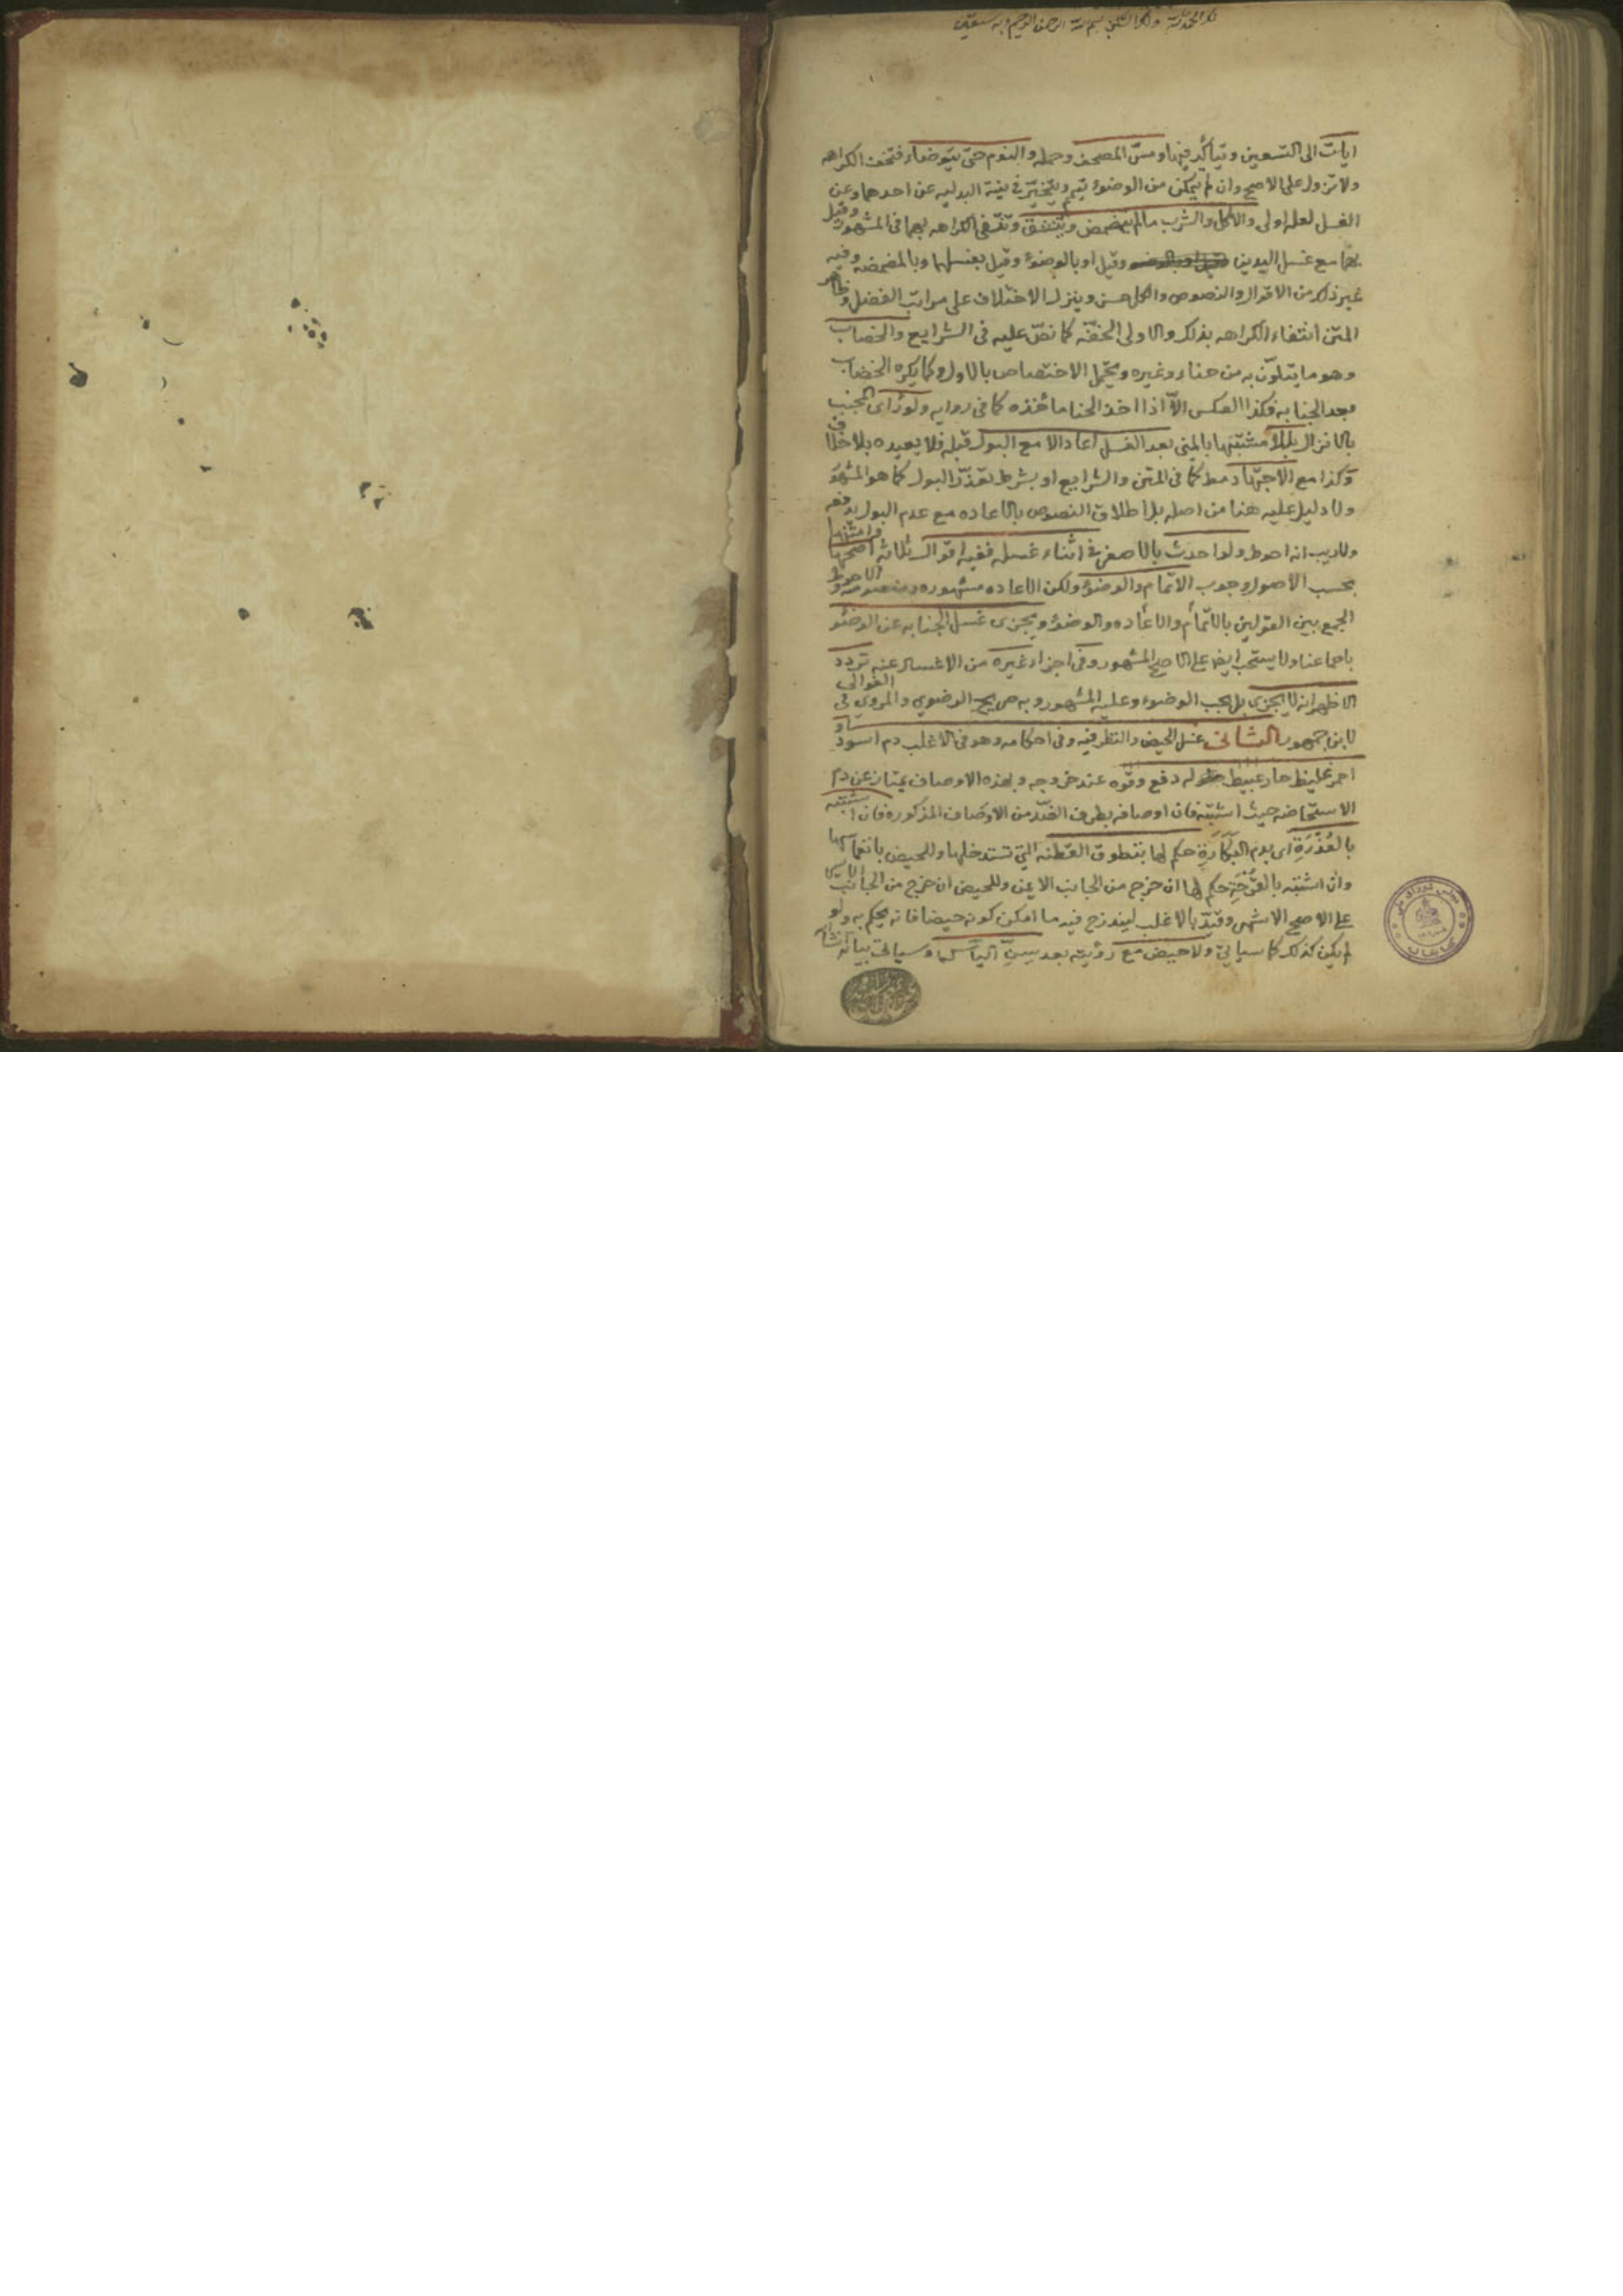 بسم الله الرحمن الرحيم وبه نستعين
ايات الى التسعين ويتأكد فيها ومس المصحف وحمله والنوم حتى يتوضاء فتخف الكراهه
ولا تزول على الاصح وان لم يتمكن من الوضوء تيمم ويتخير في نية البدليه عن احدهما وعن
الغسل لعله اولى والاكل والشرب ما لم يتمضمض ويستنشق وتنتفى الكراهه بهما فى المشهور وقيل
بهما مع غسل اليدين وقيل او بالوضوء وقيل بغسلهما وبالمضمضه وفيه
غير ذلك من الاقوال والنصوص والكل حسن وينزل الاختلاف على مراتب الفضل وظاهر
المتن انتفاء الكراهه بذلك والاولى الخفة كما نص عليه فى الشرايع والخضاب
وهو ما يتلون به من حناء وغيره ويحتمل الاختصاص بالاول وكما يكره الخضاب
بعد الجنابه فكذا العكس الا اذا اخذ الحنا مأخذه كما فى روايه ولو راى المجنب
بالانزال بللا مشتبها بالمنى بعد الغسل اعاد الا مع البول قبله فلا يعيده بلا خلاف
وكذا مع الاجتهاد مط كما فى المتن والشرايع او بشرط تعذر البول كما هو المشهور
ولا دليل عليه هنا من اصله بل اطلاق النصوص بالاعاده مع عدم البول يدفعه
ولا ريب انه احوط ولو احدث بالاصغر فى اثناء غسله ففيه اقوال ثلاثه اصحها وامتنها
بحسب الاصول وجوب الاتمام والوضوء ولكن الاعاده مشهوره ومنصوصه والاحوط
الجمع بين القولين بالاتمام والاعاده والوضوء ويجزى غسل الجنابه عن الوضوء
باجماعنا ولا يستحب ايضا على الاصح المشهور وفى اجزاء غيره من الاغسال عنه تردد
الاظهر انه لا يجزى بل يجب الوضوء وعليه المشهور وبه صريح الرضوي والمروي فى الغوالى
لابن جمهور الثانى غسل الحيض والنظر فيه وفى احكامه وهو فى الاغلب دم اسود او
احمر غليظ حار عبيط له دفع وقوه عند خروجه وبهذه الاوصاف يمتاز عن دم
الاستحاضه حيث اشتبه فان اوصافه بطرف الضد من الاوصاف المذكوره فان اشتبه
بالعذرة اى بدم البكارة حكم لها بتطوق القطنه التي تستدخلها وللحيض بانغماسها
وان اشتبه بالقرحة حكم لها ان خرج من الجانب الايمن وللحيض ان خرج من الجانب الايسر
على الاصح الاشهر وقيد بالاغلب ليندرج فيه ما امكن كونه حيضا فانه يحكم به ولو
لم يكن كذلك كما سياتي ولا حيض مع رؤيته بعد سن الياس لها وسياتى بيانه